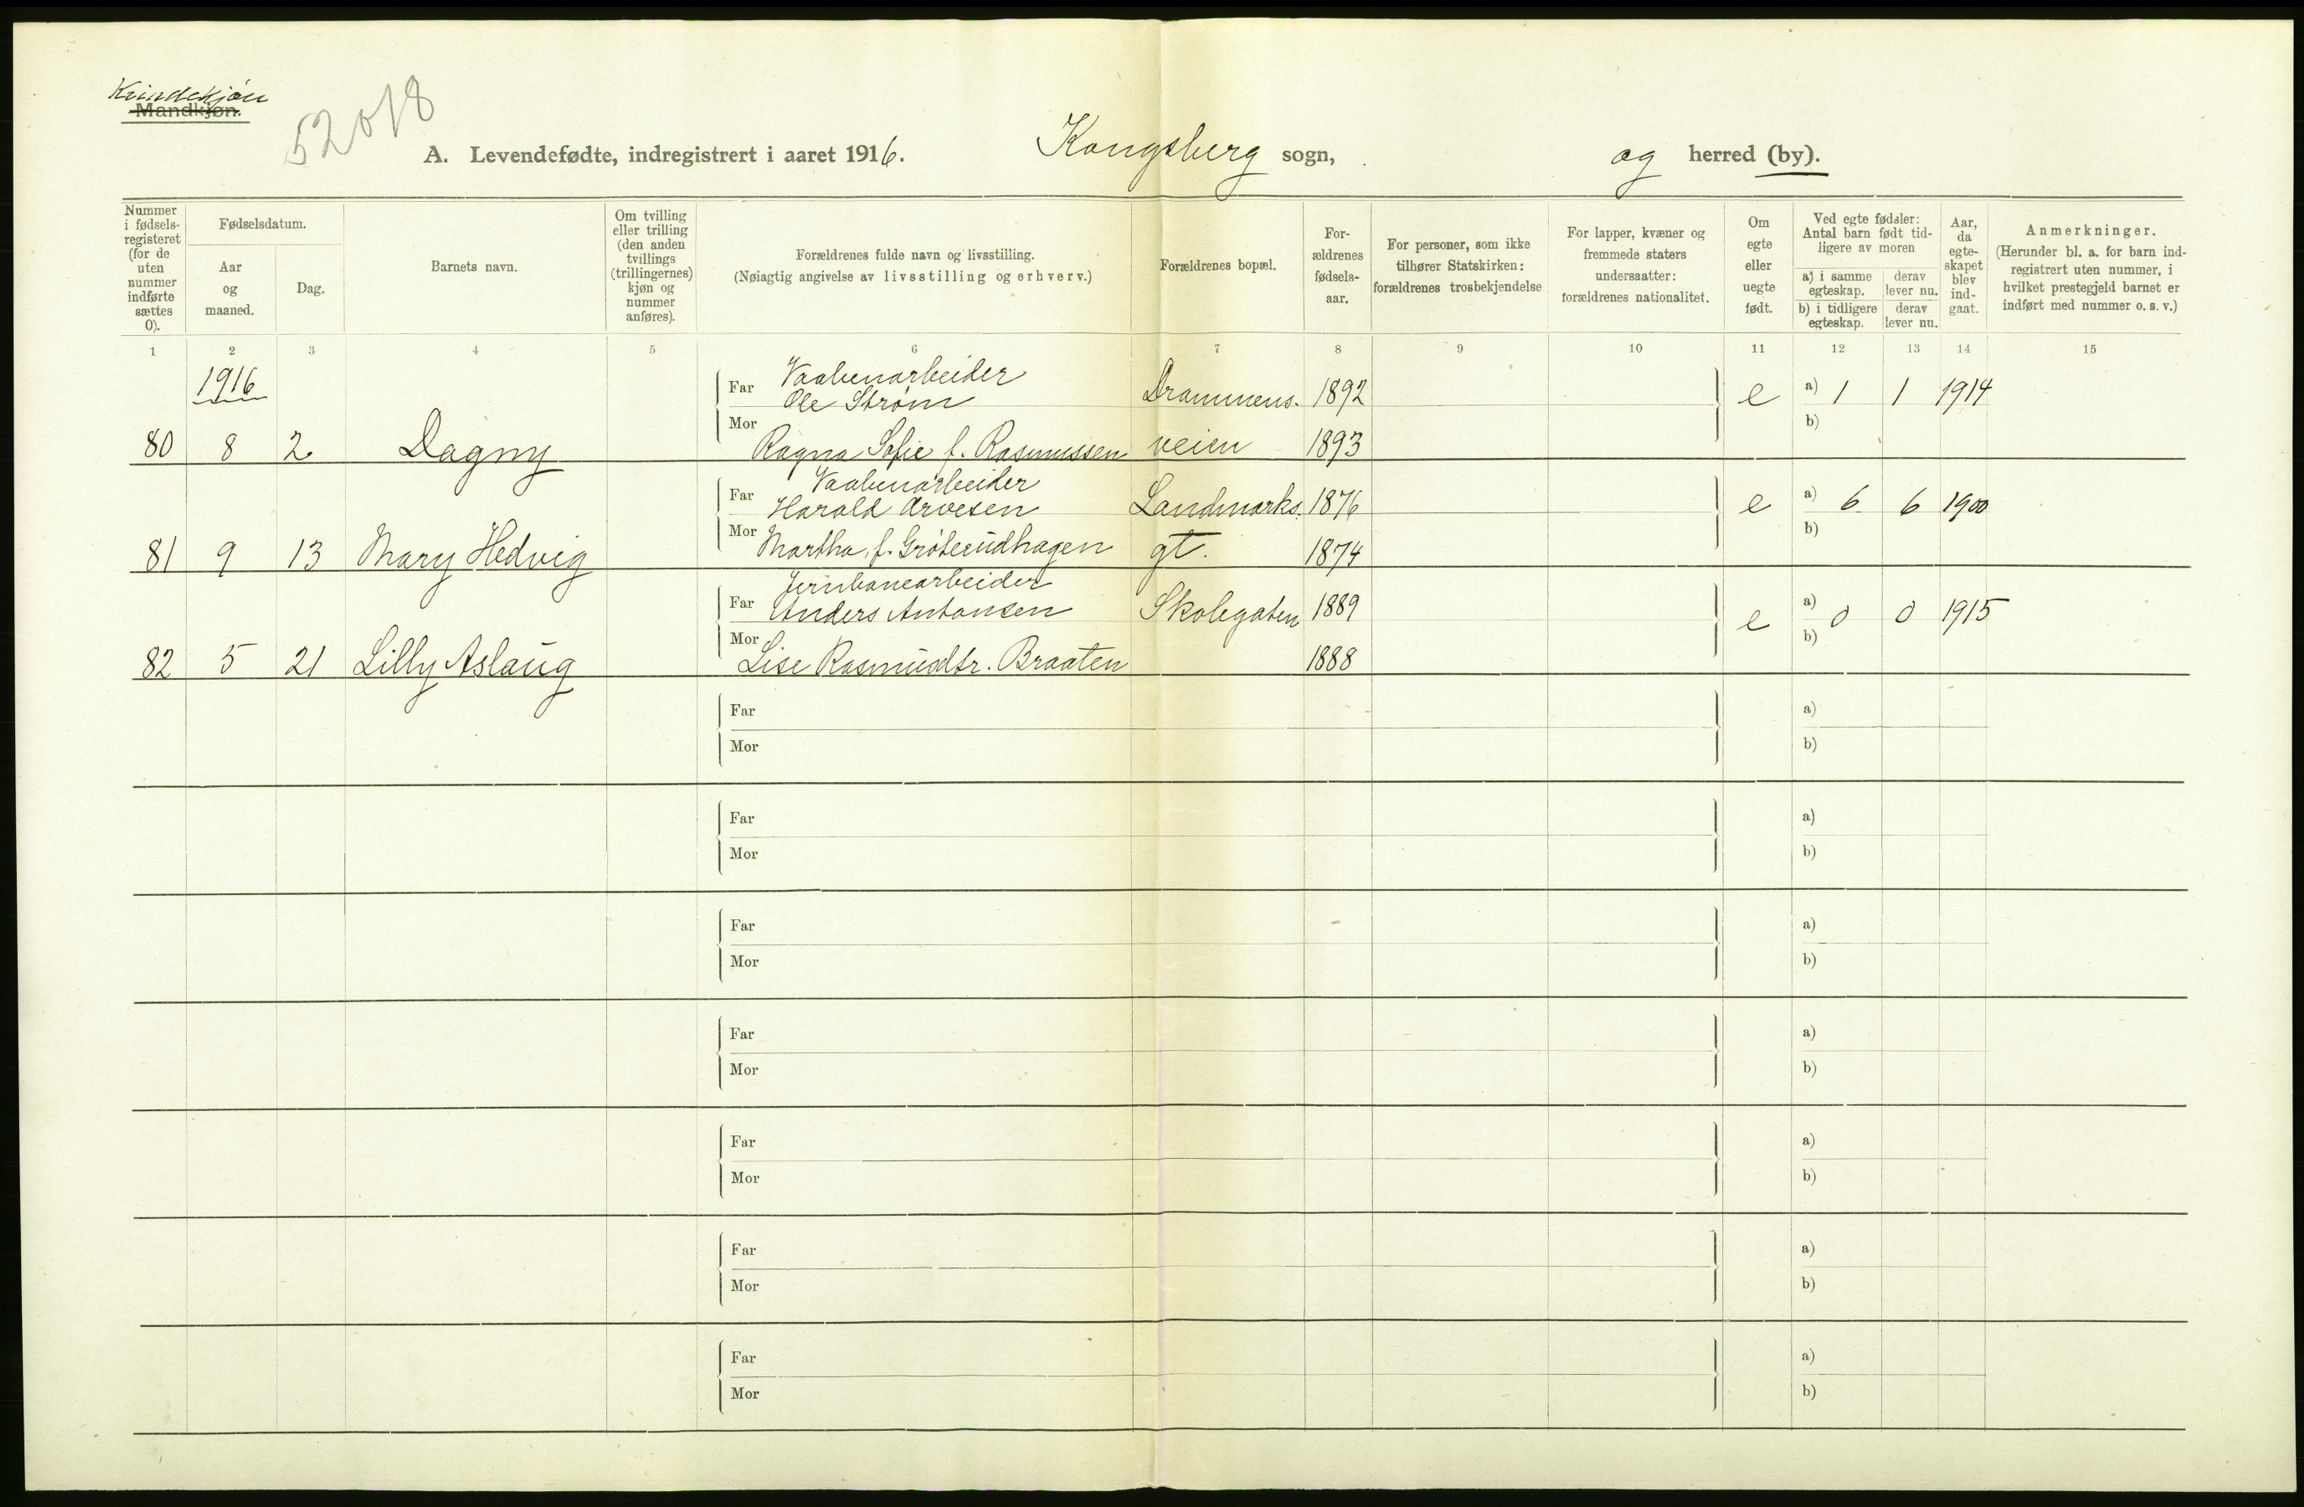 Kvindekjøn
Mandkjøn.
52018
A. Levendefødte, indregistrert i aaret 1916. Kongsberg sogn, og herred (by).
Nummer i fødsels-registeret (for de uten nummer indførte sættes 0).
Fødselsdatum.
Aar og maaned.
Dag.
Barnets navn.
Om tvilling eller trilling (den anden tvillings (trillingernes) kjøn og nummer anføres).
Forældrenes fulde navn og livsstilling.
(Nøiagtig angivelse av livsstilling og erhverv.)
Forældrenes bopæl.
For-ældrenes fødsels-aar.
For personer, som ikke tilhører Statskirken: forældrenes trosbekjendelse
For lapper, kvæner og fremmede staters undersaatter: forældrenes nationalitet.
Om egte eller uegte født.
Ved egte fødsler: Antal barn født tid-ligere av moren
a) i samme egteskap. derav lever nu.
b) i tidligere egteskap. derav lever nu.
Aar, da egte-skapet blev ind-gaat.
Anmerkninger.
(Herunder bl. a. for barn ind-registrert uten nummer, i hvilket prestegjeld barnet er indført med nummer o. s. v.)
1 2 3 4 5 6 7 8 9 10 11 12 13 14 15
1916
Vaabenarbeider
Far Ole Strøm Drammens- 1892 e a) 1 1 1914
Mor b)
80 8 2 Dagny Ragna Sofie f. Rasmussen veien 1893
Vaabenarbeider
Far Harald Arvesen Landmarks- 1876 e a) 6 6 1900
81 9 13 Mary Hedvig Mor Martha f. Grøterudhagen gt. 1874 b)
Jernbanearbeider
Far Anders Antonsen Skolegaten 1889 e a) 0 0 1915
Mor b)
82 5 21 Lilly Aslaug Lise Rasmusdtr. Braaten 1888
Far a)
Mor b)
Far a)
Mor b)
Far a)
Mor b)
Far a)
Mor b)
Far a)
Mor b)
Far a)
Mor b)
Far a)
Mor b)